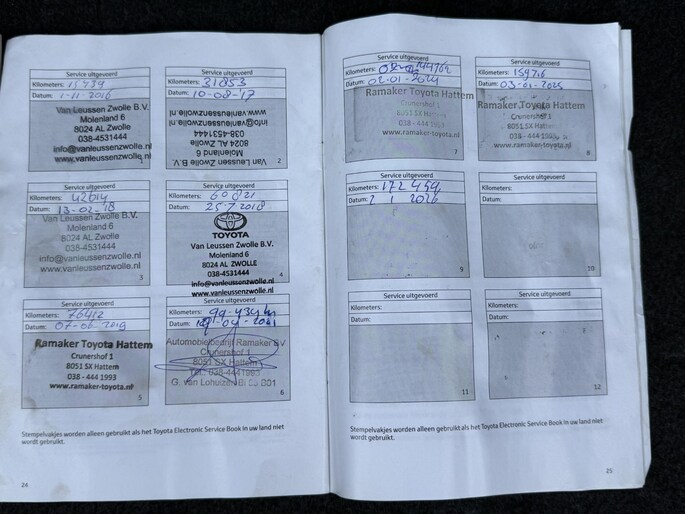 Service uitgevoerd
Kilometers: 15439
Datum: 1-11-2016
Van Leussen Zwolle B.V.
Molenland 6
8024 AL Zwolle
038-4531444
info@vanleussenzwolle.nl
www.vanleussenzwolle.nl
1
Service uitgevoerd
Kilometers: 31853
Datum: 10-08-'17
Van Leussen Zwolle B.V.
Molenland 6
8024 AL Zwolle
038-4531444
info@vanleussenzwolle.nl
www.vanleussenzwolle.nl
2
Service uitgevoerd
Kilometers: 42614
Datum: 13-02-'18
Van Leussen Zwolle B.V.
Molenland 6
8024 AL Zwolle
038-4531444
info@vanleussenzwolle.nl
www.vanleussenzwolle.nl
3
Service uitgevoerd
Kilometers: 60821
Datum: 25-7-2018
TOYOTA
Van Leussen Zwolle B.V.
Molenland 6
8024 AL ZWOLLE
038-4531444
info@vanleussenzwolle.nl
www.vanleussenzwolle.nl
4
Service uitgevoerd
Kilometers: 76412
Datum: 07-06-2019
Ramaker Toyota Hattem
Crunershof 1
8051 SX Hattem
038 - 444 1993
www.ramaker-toyota.nl
5
Service uitgevoerd
Kilometers:
Datum:
Automobielbedrijf Ramaker BV
Crunershof 1
8051 SX Hattem
Tel. 038-4441993
G. van Lohuizen
6
Stempelvakjes worden alleen gebruikt als het Toyota Electronic Service Book in uw land niet
wordt gebruikt.
24
Service uitgevoerd
Kilometers:
Datum: 02-01-2024
Ramaker Toyota Hattem
Crunershof 1
8051 SX Hattem
038 - 444 1993
www.ramaker-toyota.nl
7
Service uitgevoerd
Kilometers: 159716
Datum: 03-01-2025
Ramaker Toyota Hattem
Crunershof 1
8051 SX Hattem
038 - 444 1993
www.ramaker-toyota.nl
8
Service uitgevoerd
Kilometers: 172 459
Datum: 2 1 2026
9
Service uitgevoerd
Kilometers:
Datum:
10
Service uitgevoerd
Kilometers:
Datum:
11
Service uitgevoerd
Kilometers:
Datum:
12
Stempelvakjes worden alleen gebruikt als het Toyota Electronic Service Book in uw land niet
wordt gebruikt.
25